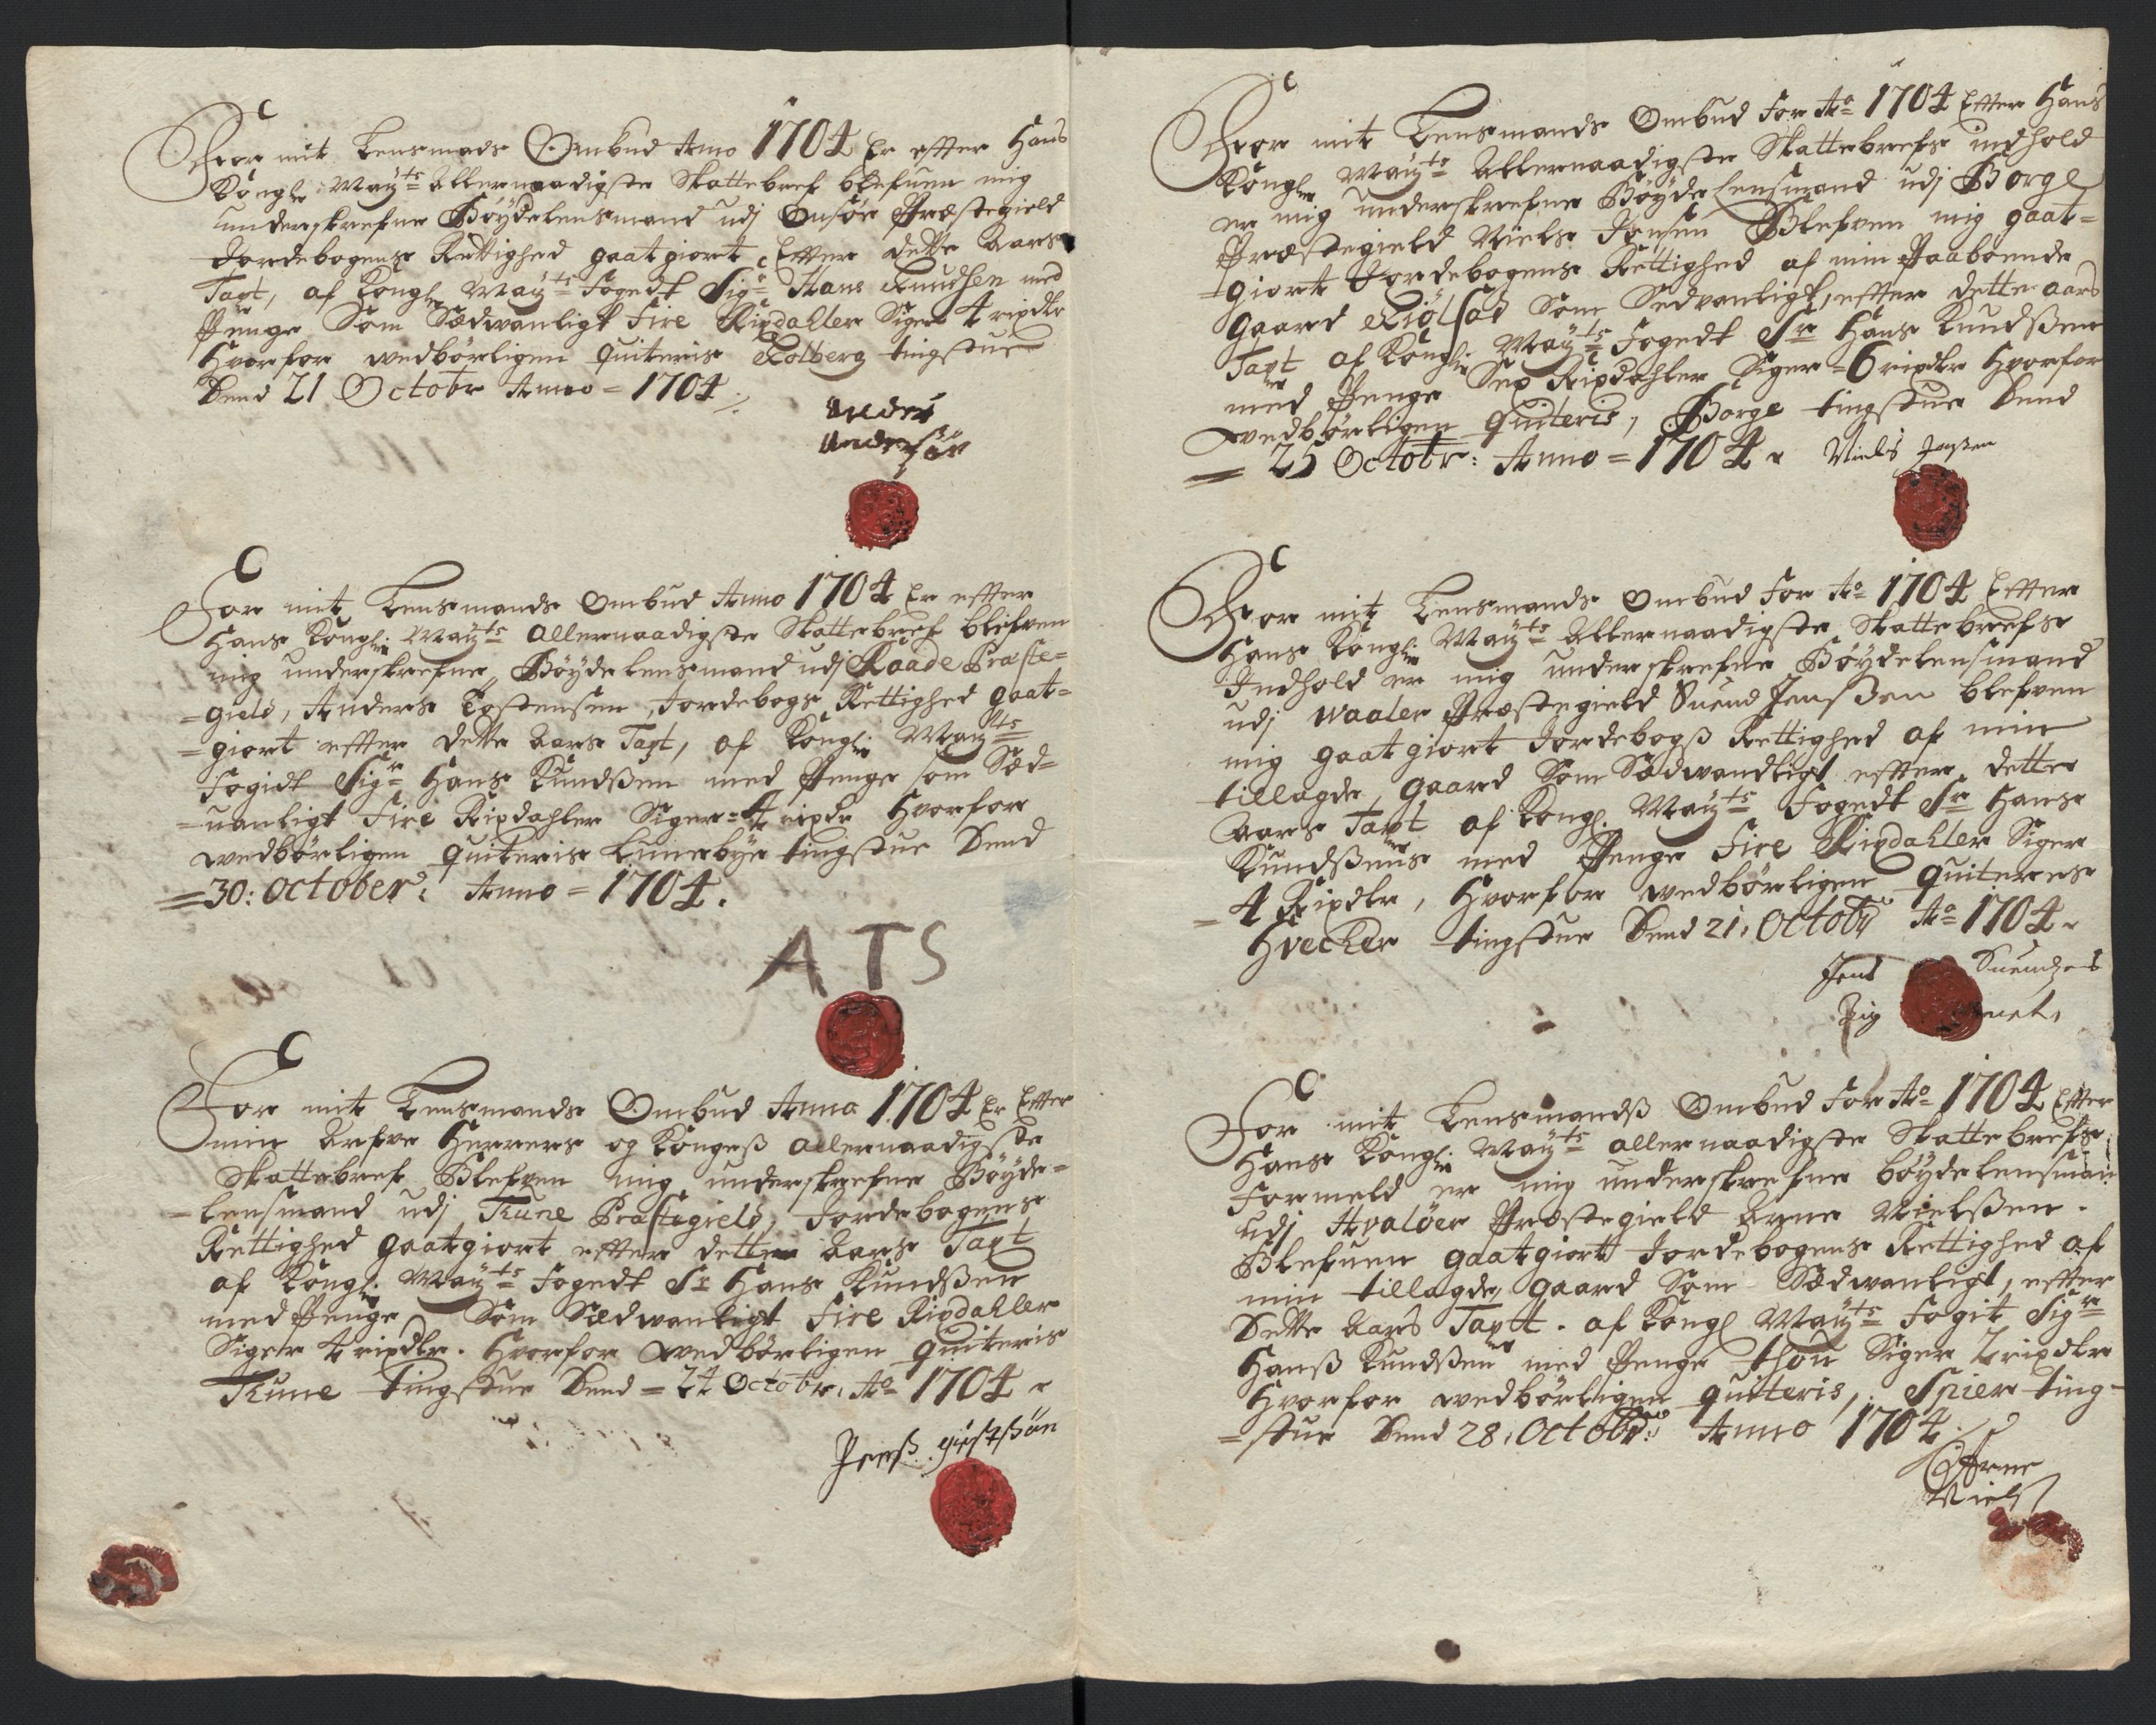 For mit Lensmads Ombud Anno 1704 Er effter Hans
Kongl: Mayts Allernaadigste Skattebref blefuen mig
underskrefne Böydelensmand udj Onsöe Præstegield
Jordebogens Rettighed gaatgiort, Efter dette Aars
Taxt, af Kongl: Mayts Fogedt Sigr Hans Knudsen med
Penge Som Sædwanligt Fire Rixdahler Siger 4 rixdlr
Hvorfor wedbörligen quiteris Kolberg tingstue
Dend 21 Octobr Anno = 1704
Anders
Andersön
For mit Lensmands Ombud Anno 1704 Er effter
Hans Kongl: Mayts allernaadigste Skattebref blefven
mig underskrefne, Böydelensmand udj Raade Præste=
=gield, Anders Tostensen, Jordebogs Rettighed gaat=
=giort effter dette Aars Taxt, af Kongl: Mayts
Fogidt Sigr Hans Knudssen med Penge som Sæd=
=uanligt Fire Rixdahler Siger = 4 rixdr Hvorfor
wedbörligen quiteris Lunebye tingstue Dend
=30: October: Anno = 1704.
A T S
For mit Lensmands Ombud Anno 1704 Er Effter
min Arfve Herrers og Kongess allernaadigste
Skattebref Blefven mig underskrefne Böyde=
=lensmand udj Thune Præstegield, Jordebogens
Rettighed gaatgiort effter dette Aars Taxt
af Kongl: Mayts Fogedt Sr Hans Knudssen
med Penge Som Sædwanligt Fire Rixdahler
Siger 4 rixdlr. Hvorfor wedbörligen quiteris
Thune tingstue Dend = 24 Octobr: Ao 1704
For mit Lensmands Ombud For Ao 1704 Effter Hans
Kongl: Mayts Allernaadigste Skattebrefs indhold
er mig underskrefne Böyde Lensmand udj Borge
Præstegield Niels Jensen Blefven mig gaat=
=giort Jordebogens Rettighed af min Paaboende
gaard Kiölsad Som Sedvanligt, effter dette aars
Taxt af Kongl: Mayts Fogedt Sr Hans Knudssen
med Penge Sex Rixdahler Siger = 6 rixdlr Hvorfor
wedbörligen Quiteris, Borge tingstue Dend
= 25 Octobr: Anno = 1704 Niels Jenssen
For mit Lensmands Ombud For Ao 1704 Effter
Hans Kongl: Mayts Allernaadigste Skattebrefs
Indhold er mig underskrefne Böydelensmand
udj Waaler Præstegield Suend Jenssen blefven
mig gaatgiort Jordebogss Rettighed af min
tillagde, gaard Som Sædwandligt effter dette
Aars Taxt af Kongl: Mayts Fogedt Sr Hans
Knudssens med Penge Fire Rixdahler Siger
= 4 Rixdlr, Hvorfor wedbörligen Quiteres
Hvecker tingstue Dend 21. Octobr Ao 1704
Jens Suendzens
For mit Lensmandss Ombud For Ao 1704 Effter
Hans Kongl: Mayts allernaadigste Skattebrefs
Formeld er mig underskrefne böydelensman
udj Hvalöer Præstegield Arne Nielssen.
Blefuen gaatgiort Jordebogens Rettighed af
min tillagde, gaard Som Sædwanligt, effter
Dette Aars Taxtt. af Kongl Mayts Fogit Sigr
Hanss Knudssen med Penge thou Siger 2 rixdlr
Hvorfor wedbörligen quiteris, Spier ting=
=stue Dend 28. Octobr: Anno 1704
Arne
Niels